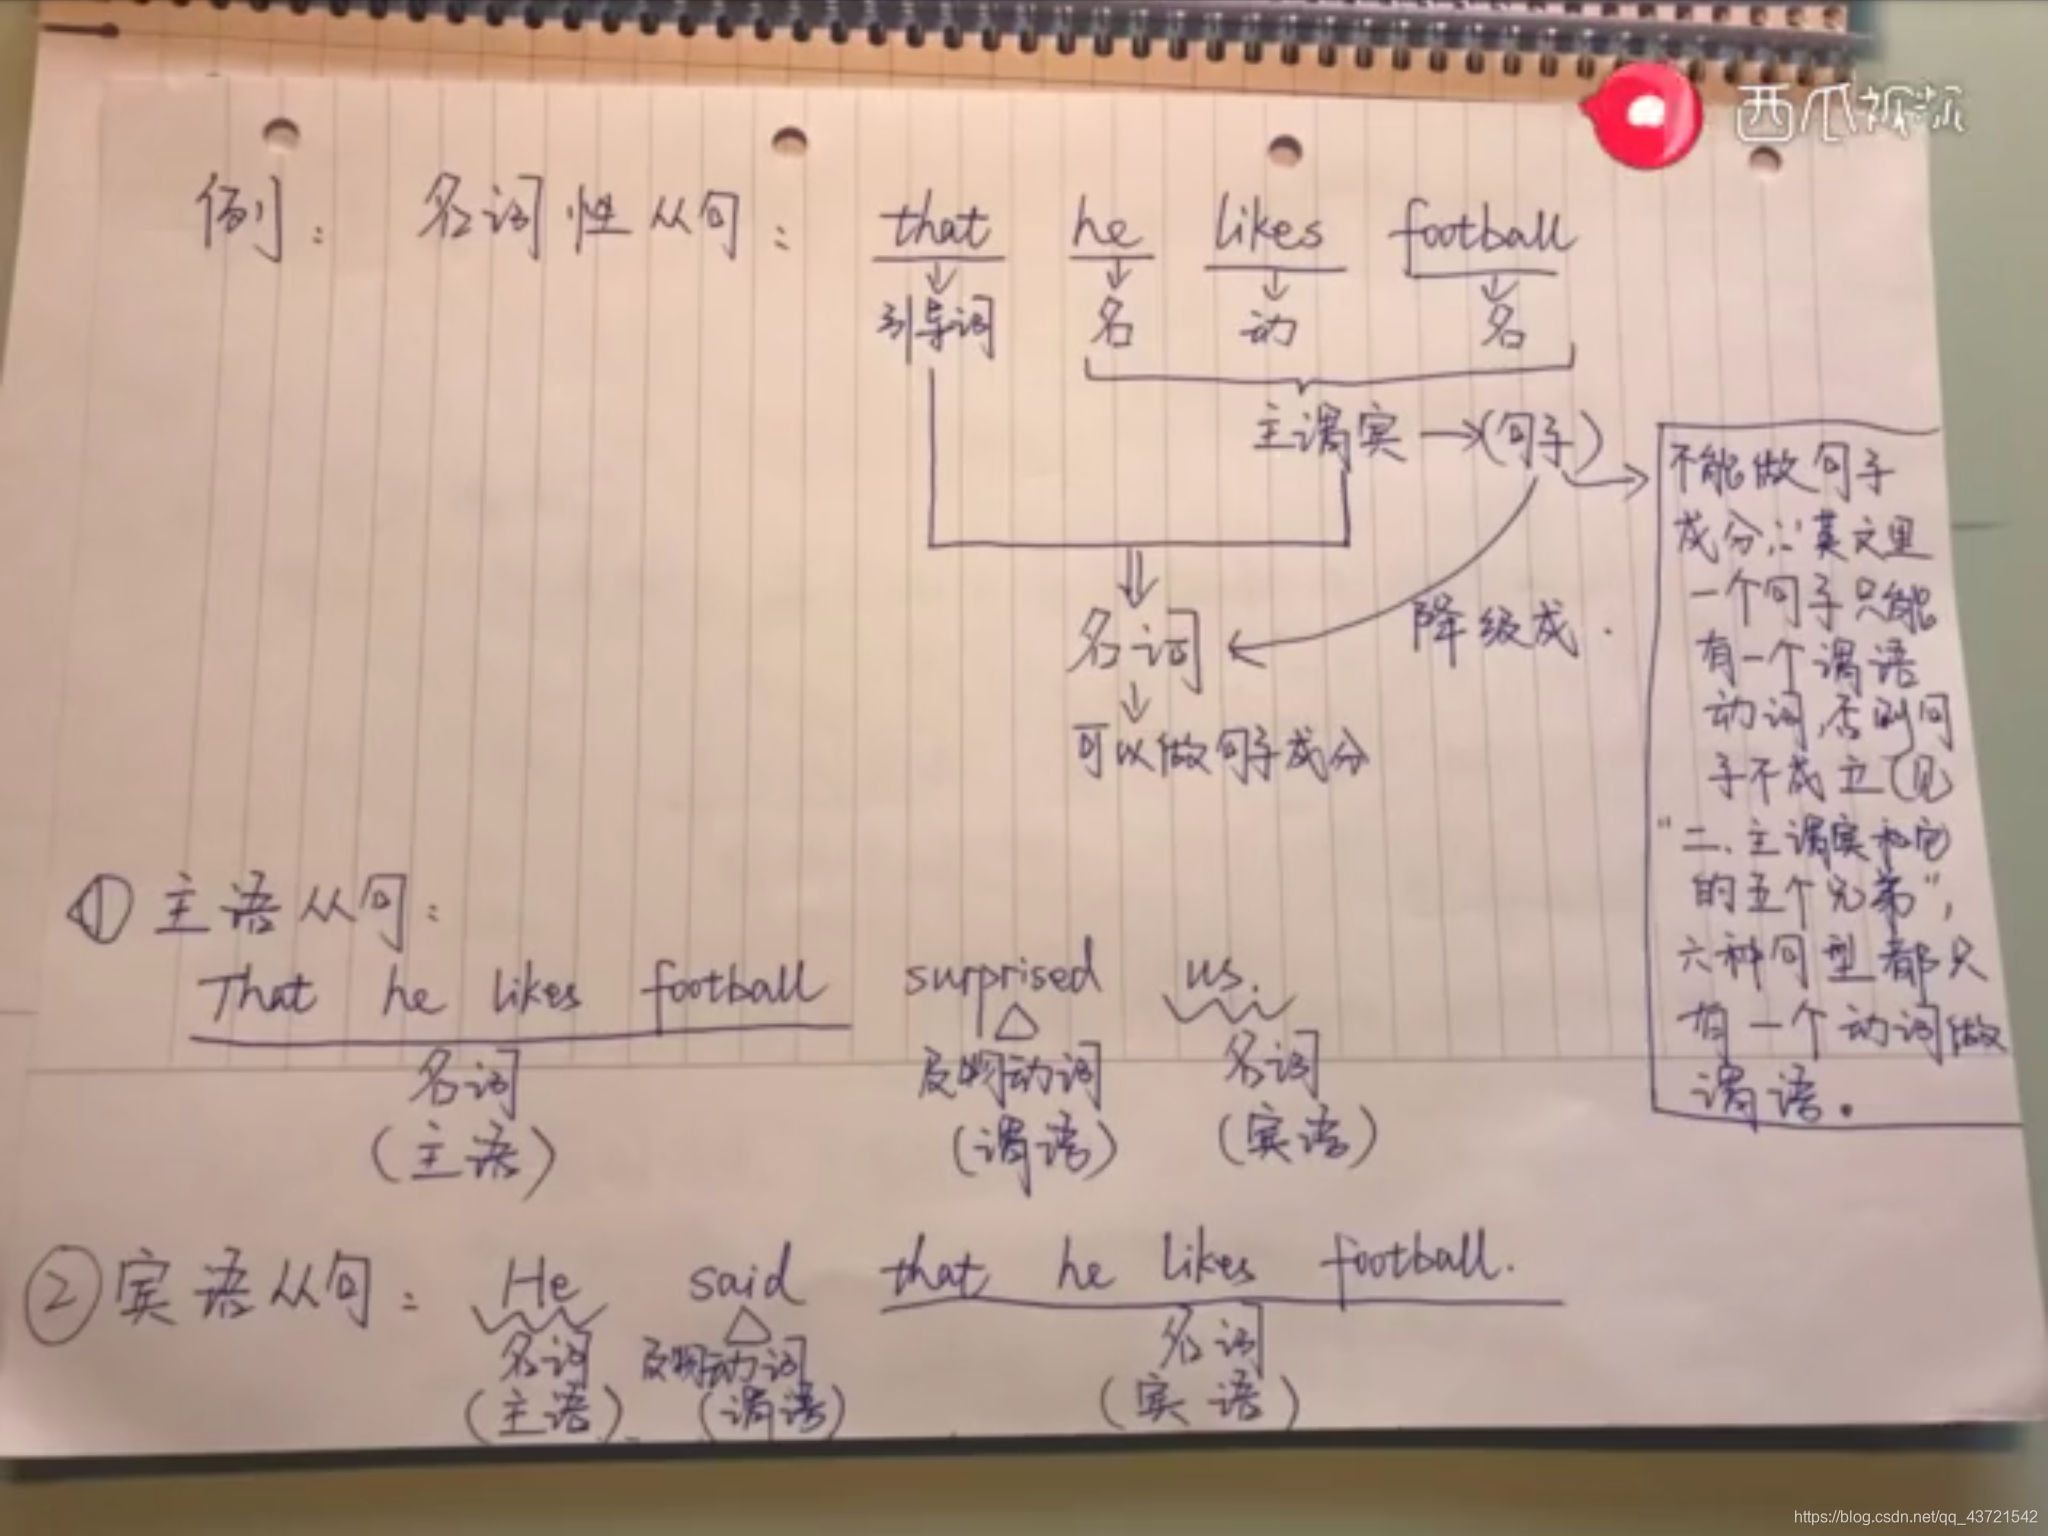 西瓜视频
例： 名词性从句： that he likes football
引导词 名 动 名
主谓宾 →(句子)
降级成
名词
可以做句子成分
不能做句子
成分∵英文里
一个句子只能
有一个谓语
动词,否则句
子不成立(见
“二、主谓宾和它
的五个兄弟”,
六种句型都只
有一个动词做
谓语。
① 主语从句：
That he likes football surprised us.
名词 及物动词 名词
(主语) (谓语) (宾语)
② 宾语从句： He said that he likes football.
名词 及物动词 名词
(主语) (谓语) (宾语)
https://blog.csdn.net/qq_43721542